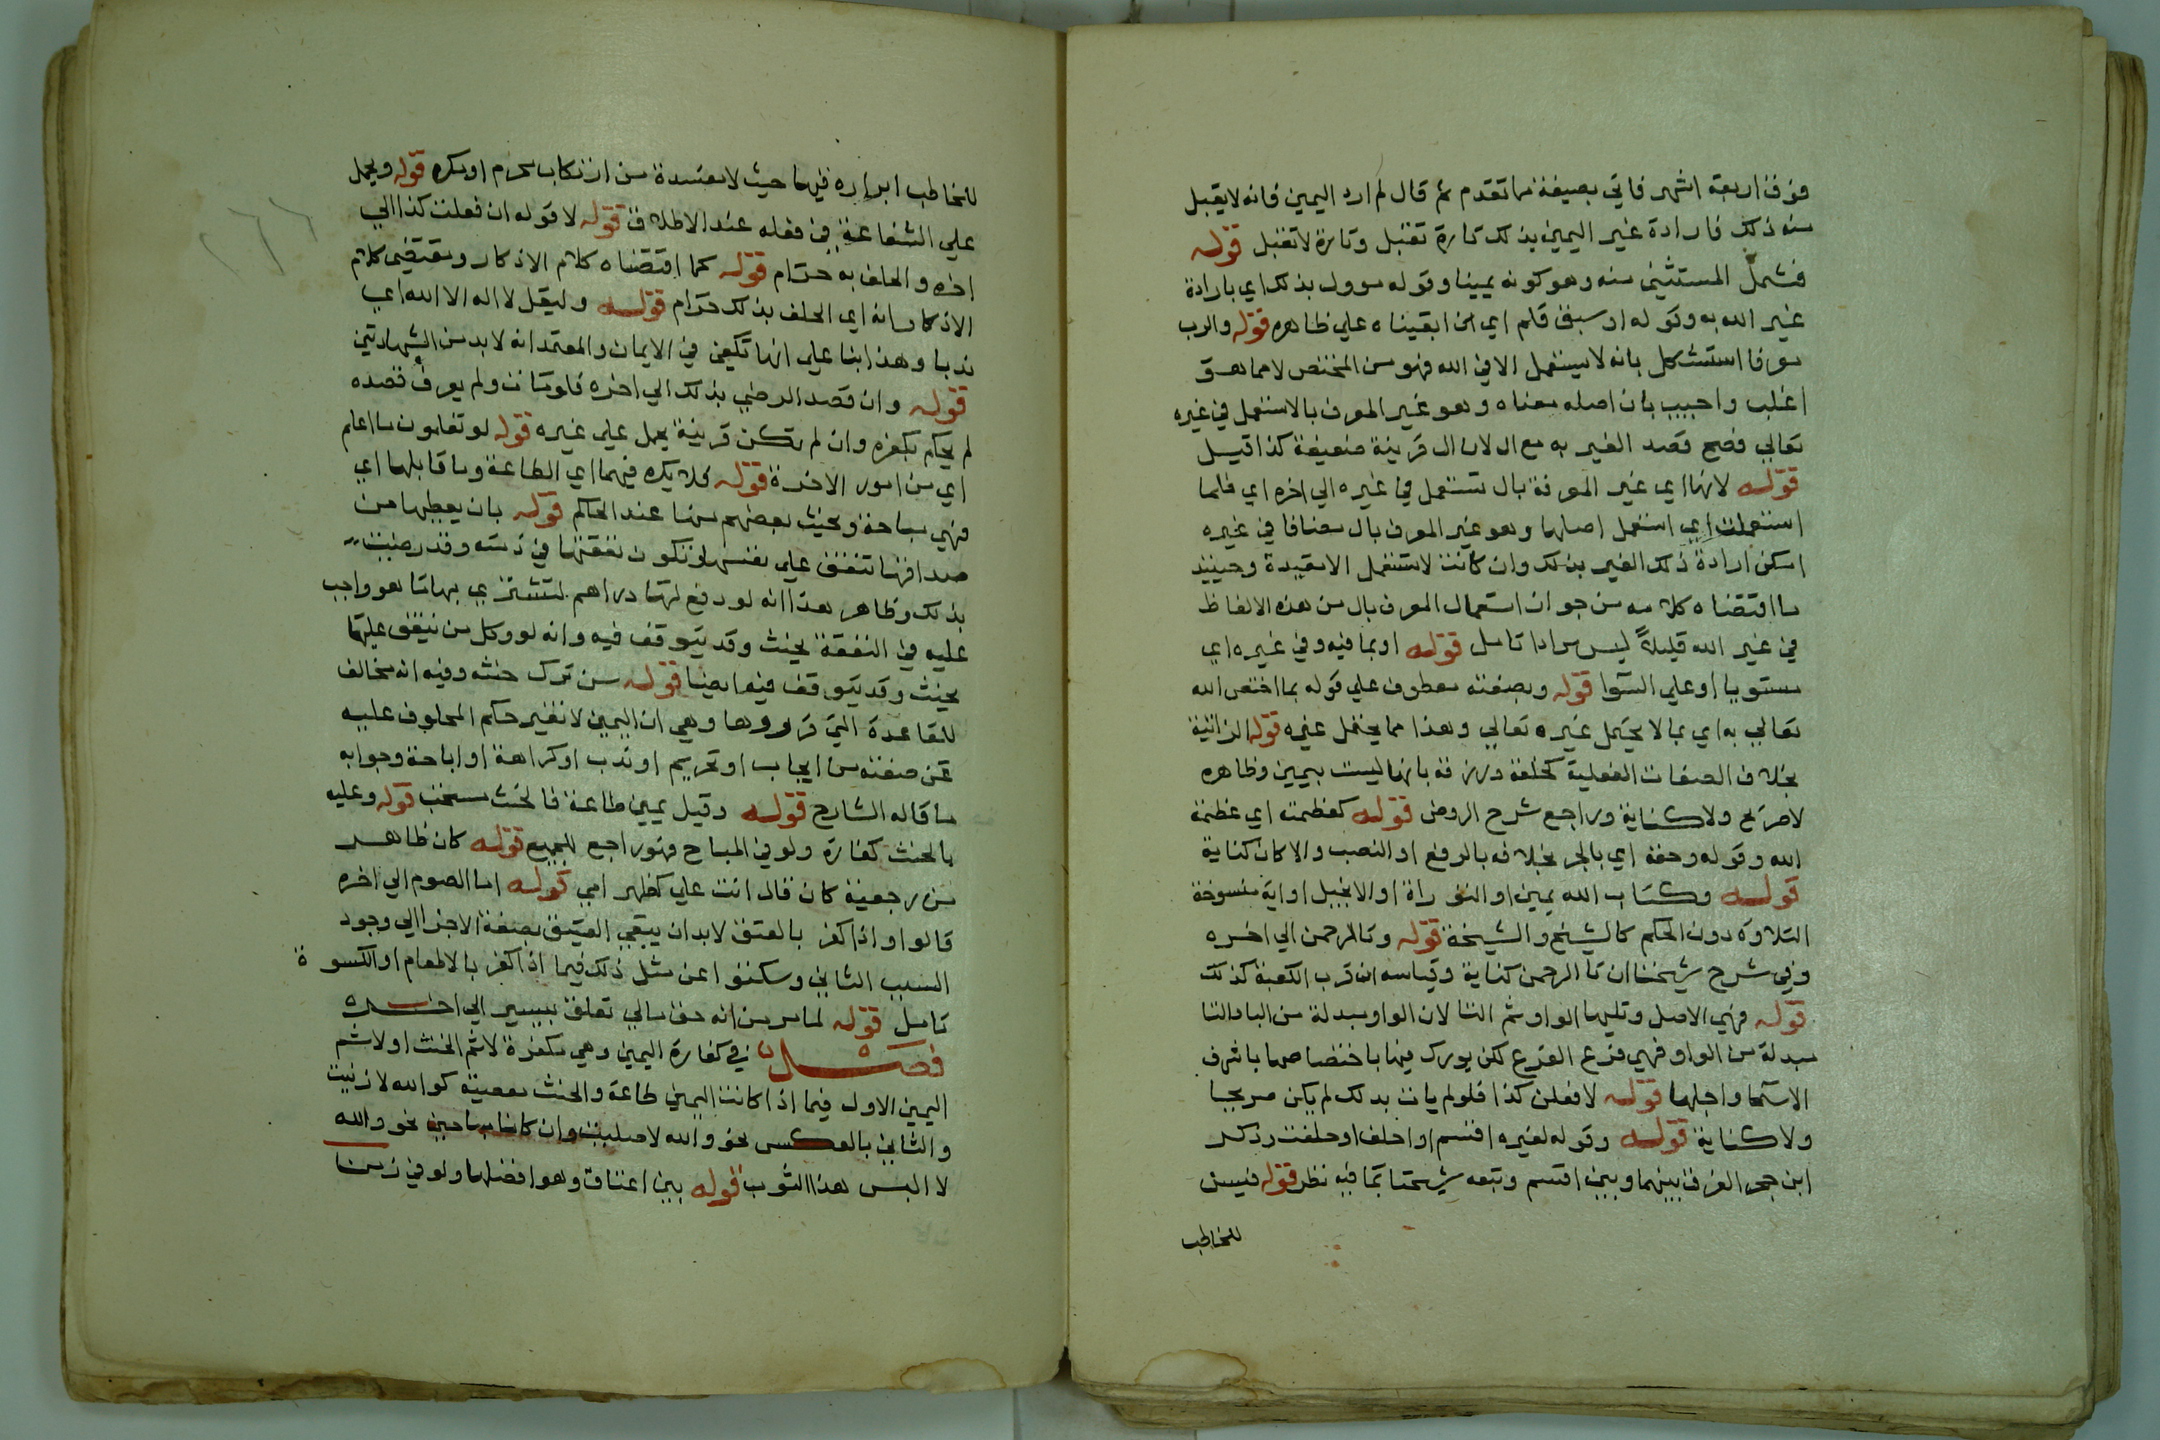 فوق اربعة اشهر فاتي بصيغة مما تقدم ثم قال لم ارد اليمين فانه لا يقبل
منه ذلك فارادة غير اليمين بذلك تارة تقبل وتارة لا تقبل قوله
فشمل المستثني منه وهو كونه يمينا وقوله مؤول بذلك اي بارادة
غير الله به وكوله او سبق قلم اي ان ابقيناه علي ظاهره قوله والرب
فا استشكل بانه لا يستعمل الا في الله فهو من المختص لا مما هو
اغلب واجيب بان اصله معناه وهو غير المعرف بال استعمل في غيره
تعالي فصح قصد الغير به مع ال لان ال قرينة ضعيفة كذا قيل
قوله لانها اي غير المعرفة بال تستعمل في غيره الي اخره اي فلما
استعملت اي استعمل اصلها وهو غير المعرف بال مضافا في غيره
امكن ارادة ذلك الغير بذلك وان كانت لا تستعمل الا مقيدة وحينئذ
ما اقتضاه كلامه من جواز استعمال المعرف بال من هذه الالفاظ
في غير الله قليلا ليس مرادا تامل قوله او بما فيه وفي غيره اي
مستويا او علي السوا قوله وبصفته معطوف علي قوله بما اختص الله
تعالي به اي بما لا يحتمل غيره تعالي وهذا مما يحتمل غيره قوله الذاتية
بخلاف الصفات الفعلية كخلقه ورزقه بانها ليست بيمين وظاهره
لا صريح ولا كناية وراجع شرح الروض قوله كعظمته اي عظمة
الله وقوله وحقه اي بالجر بخلافه بالرفع او النصب والا كان كناية
قوله وكتاب الله يمين او التوراة او الانجيل او اية منسوخة
التلاوة دون الحكم كالشيخ والشيخة قوله وتالرحمن الي اخره
وفي شرح شيخنا ان تا الرحمن كناية وقياسه ان ترب الكعبة كذلك
قوله فهي الاصل وتليها الواو ثم التا لان الواو مبدلة من البا والتا
مبدلة من الواو فهي فرع الفرع لكن بورك فيها باختصاصها باشرف
الاسما واجلها قوله لافعلن كذا فلو لم يات بدلك لم يكن صريحا
ولا كناية قوله وقوله لغيره اقسم او احلف او حلفت وذكر
ابن حجر الفرق بينهما وبين اقسم وتبعه شيخنا بما فيه نظر قوله فيسن
للمخاطب
للمخاطب ابراره فيها حيث لا مفسدة من ارتكاب محرم او مكره قوله ويحمل
علي الشفاعة في فعله عند الاطلاق قوله لا قوله ان فعلت كذا الي
اخره والحلف به حرام قوله كما اقتضاه كلام الاذكار ومقتضي كلام
الاذكار انه اي الحلف بذلك حرام قوله وليقل لا اله الا الله اي
ندبا وهذا بنا علي انها تكفي في الايمان والمعتمد انه لا بد من الشهادتين
قوله وان قصد الرضي بذلك الي اخره فلو مات ولم يعرف قصده
لم يحكم بكفره وان لم تكن قرينة يحمل علي غيره قوله لو تعلمون ما اعلم
اي من امور الاخرة قوله فلا يكره فيهما اي الطاعة وما قابلها اي
فهي مباحة وبحث بعضهم سنها عند الحاكم قوله بان يعطيها من
صداقها تنفق علي نفسها او تكون نفقتها في ذمته وقد رضيت
بذلك وظاهر هذا انه لو دفع لها دراهم لتشتري بها ما هو واجب
عليه في النفقة يحنث وقد يتوقف فيه وانه لو وكل من ينفق عليها
يحنث وقد يتوقف فيه ايضا قوله سن ترك حنثه وفيه انه مخالف
للقاعدة التي قرروها وهي ان اليمين لا تغير حكم المحلوف عليه
عن صفته من ايجاب او تحريم او ندب او كراهة او اباحة وجوابه
ما قاله الشارح قوله وقيل يمين طاعة فالحنث مستحب قوله وعليه
بالحنث كفارة ولو في المباح فهو راجع للجميع قوله كان ظاهر
من رجعية كان قال انت علي كظهر امي قوله اما الصوم الي اخره
قالوا واذا كفر بالعتق لا بد ان يبقي العتيق بصفة الاجزا الي وجود
السبب الثاني وسكتوا عن مثل ذلك فيما اذا كفر بالاطعام او الكسوة
تامل قوله لما مر من انه حق مالي تعلق بسببين الي اخره
فصل في كفارة اليمين وهي مكفرة لاثم الحنث او لاثم
اليمين الاول فيما اذا كانت اليمين طاعة والحنث معصية كوالله لا زنيت
والثاني بالعكس نحو والله لا صليت وان كانا مباحين نحو والله
لا البس هذا الثوب قوله بين اعتاق وهو افضلها ولو في زمن